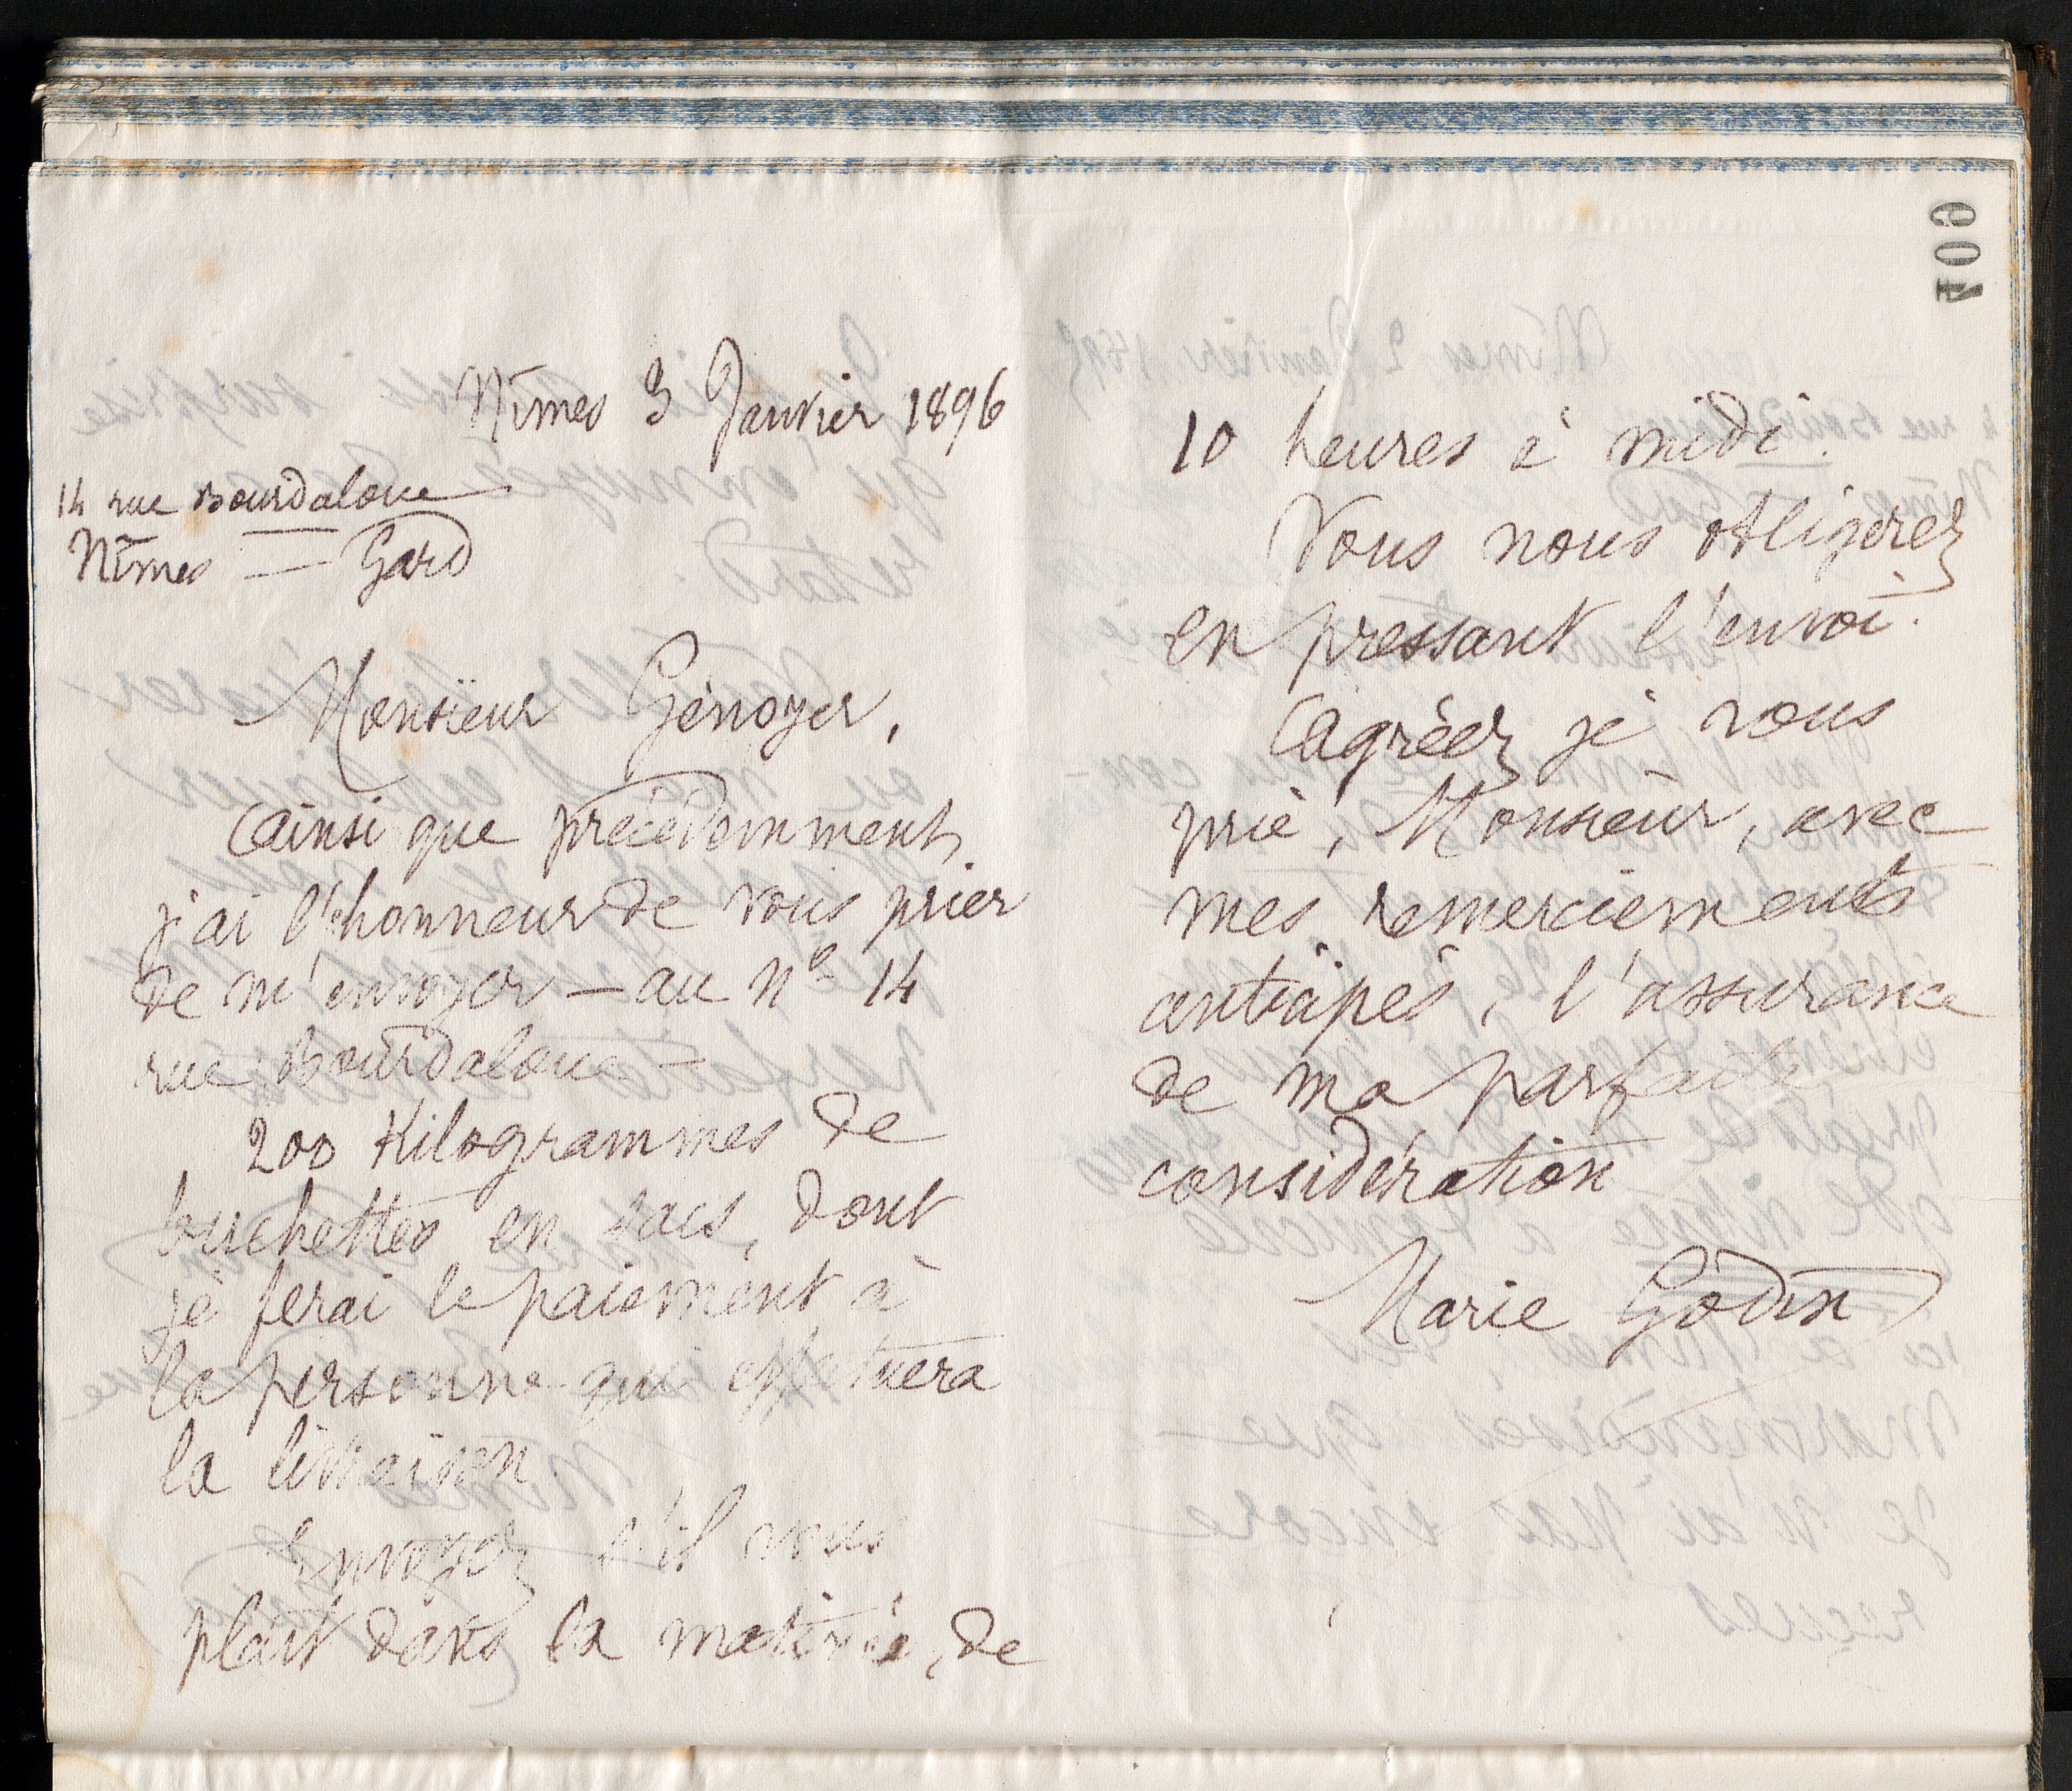 604
Nîmes 3 Janvier 1896
14 rue Bourdaloue
Nîmes — Gard
Monsieur Génoyer,
Ainsi que précédemment,
j'ai l'honneur de vous prier
de m'envoyer — au No 14
rue Bourdaloue —
200 Kilogrammes de
buchettes en sacs, dont
je ferai le paiement à
la personne qui effectuera
la livraison.
Envoyez s'il vous
plait dans la matinée, de
10 heures à midi.
Vous nous obligerez
en pressant l'envoi.
Agréez je vous
prie, Monsieur, avec
mes remerciements
anticipés, l'assurance
de ma parfaite
considération
Marie Godin